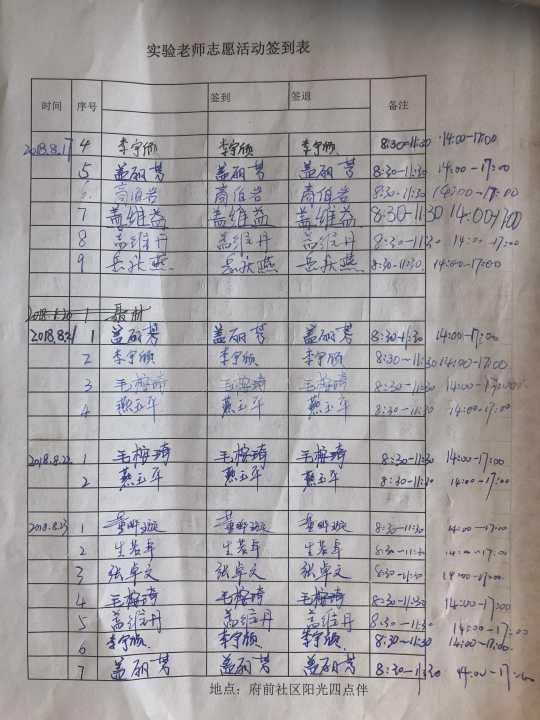 实验老师志愿活动签到表
时间 序号 签到 签退 备注
2018.8.17 4 李宇颀 李宇颀 李宇颀 8:30-11:30 14:00-17:00
5 盖丽芳 盖丽芳 盖丽芳 8:30-11:30 14:00-17:00
6 高伯岩 高伯岩 高伯岩 8:30-11:30 14:00-17:00
7 盖维益 盖维益 盖维益 8:30-11:30 14:00-17:00
8 孟维丹 孟维丹 孟维丹 8:30-11:30 14:00-17:00
9 岳秋燕 岳秋燕 岳秋燕 8:30-11:30 14:00-17:00
1
2018.8.21 1 盖丽芳 盖丽芳 盖丽芳 8:30-11:30 14:00-17:00
2 李宇颀 李宇颀 李宇颀 8:30-11:30 14:00-17:00
3 毛梅琦 毛梅琦 毛梅琦 8:30-11:30 14:00-17:00
4 燕玉平 燕玉平 燕玉平 8:30-11:30 14:00-17:00
2018.8.22 1 毛梅琦 毛梅琦 毛梅琦 8:30-11:30 14:00-17:00
2 燕玉平 燕玉平 燕玉平 8:30-11:30 14:00-17:00
2018.8.23 1 8:30-11:30 14:00-17:00
2 生若卓 生若卓 生若卓 8:30-11:30 14:00-17:00
3 张卓文 张卓文 张卓文 8:30-11:30 14:00-17:00
4 毛梅琦 毛梅琦 毛梅琦 8:30-11:30 14:00-17:00
5 孟维丹 孟维丹 孟维丹 8:30-11:30 14:00-17:00
6 李宇颀 李宇颀 李宇颀 8:30-11:30 14:00-17:00
7 盖丽芳 盖丽芳 盖丽芳 8:30-11:30 14:00-17:00
地点：府前社区阳光四点伴